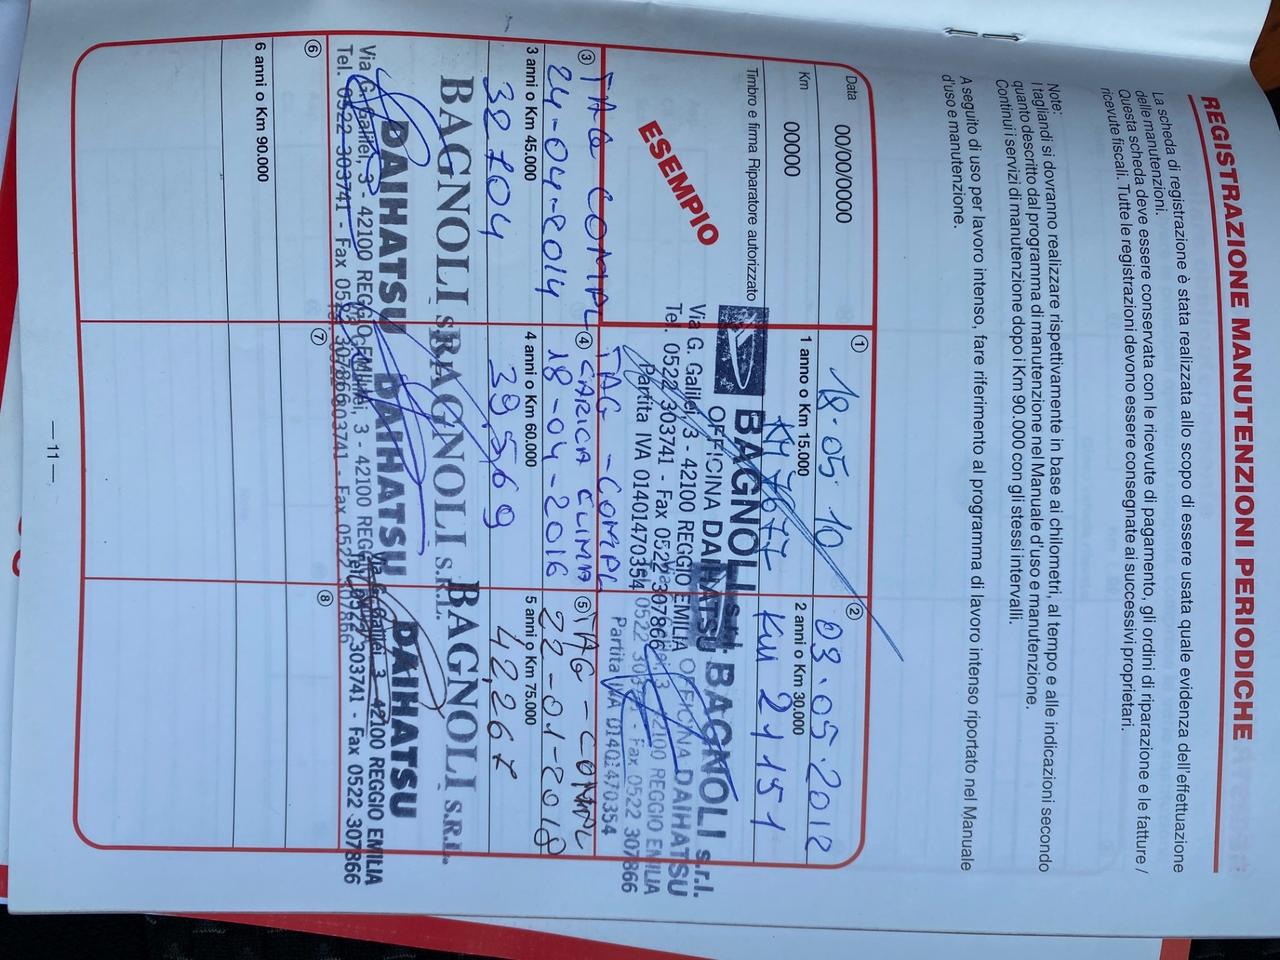 REGISTRAZIONE MANUTENZIONI PERIODICHE
La scheda di registrazione è stata realizzata allo scopo di essere usata quale evidenza dell'effettuazione
delle manutenzioni.
Questa scheda deve essere conservata con le ricevute di pagamento, gli ordini di riparazione e le fatture /
ricevute fiscali. Tutte le registrazioni devono essere consegnate ai successivi proprietari.
Note:
I tagliandi si dovranno realizzare rispettivamente in base ai chilometri, al tempo e alle indicazioni secondo
quanto descritto dal programma di manutenzione nel Manuale d'uso e manutenzione.
Continui i servizi di manutenzione dopo i Km 90.000 con gli stessi intervalli.
A seguito di uso per lavoro intenso, fare riferimento al programma di lavoro intenso riportato nel Manuale
d'uso e manutenzione.
Data 00/00/0000
Km 00000
Timbro e firma Riparatore autorizzato
ESEMPIO
1
18-05-10
1 anno o Km 15.000
KM 7677
BAGNOLI s.r.l.
OFFICINA DAIHATSU
Via G. Galilei, 3 - 42100 REGGIO EMILIA
Tel. 0522 303741 - Fax 0522 307866
Partita IVA 01401470354
2
03.05.2012
2 anni o Km 30.000
KM 21151
BAGNOLI s.r.l.
OFFICINA DAIHATSU
2100 REGGIO EMILIA
0522 303741 - Fax 0522 307866
Partita IVA 01401470354
3
TAG COMPL
24-04-2014
3 anni o Km 45.000
38704
BAGNOLI S.R.L.
DAIHATSU
Via G. Galilei, 3 - 42100 REGGIO EMILIA
Tel. 0522 303741 - Fax 0522 307866
4
TAG-COMPL
CARICA CLIMA
18-04-2016
4 anni o Km 60.000
39,569
BAGNOLI S.R.L.
DAIHATSU
3 - 42100 REGGIO
303741 - Fax 0522 307866
5
TAG-COMPL
22-01-2018
5 anni o Km 75.000
42,267
BAGNOLI S.R.L.
DAIHATSU
Via G. Galilei, 3 - 42100 REGGIO EMILIA
Tel. 0522 303741 - Fax 0522 307866
6
6 anni o Km 90.000
7
8
— 11 —